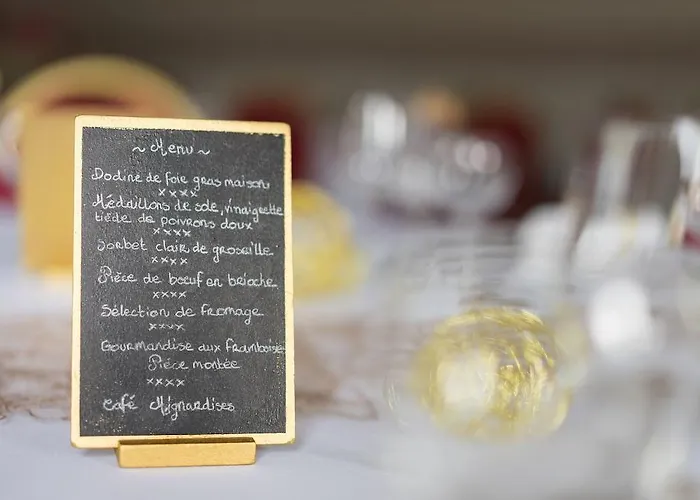 ~ Menu ~
Dodine de foie gras maison
xxxx
Médaillons de sole, vinaigrette
tiède de poivrons doux
xxxx
Sorbet clair de groseille
xxxx
Pièce de boeuf en brioche
xxxx
Sélection de fromage
xxxx
Gourmandise aux framboises
Pièce montée
xxxx
Café Mignardises